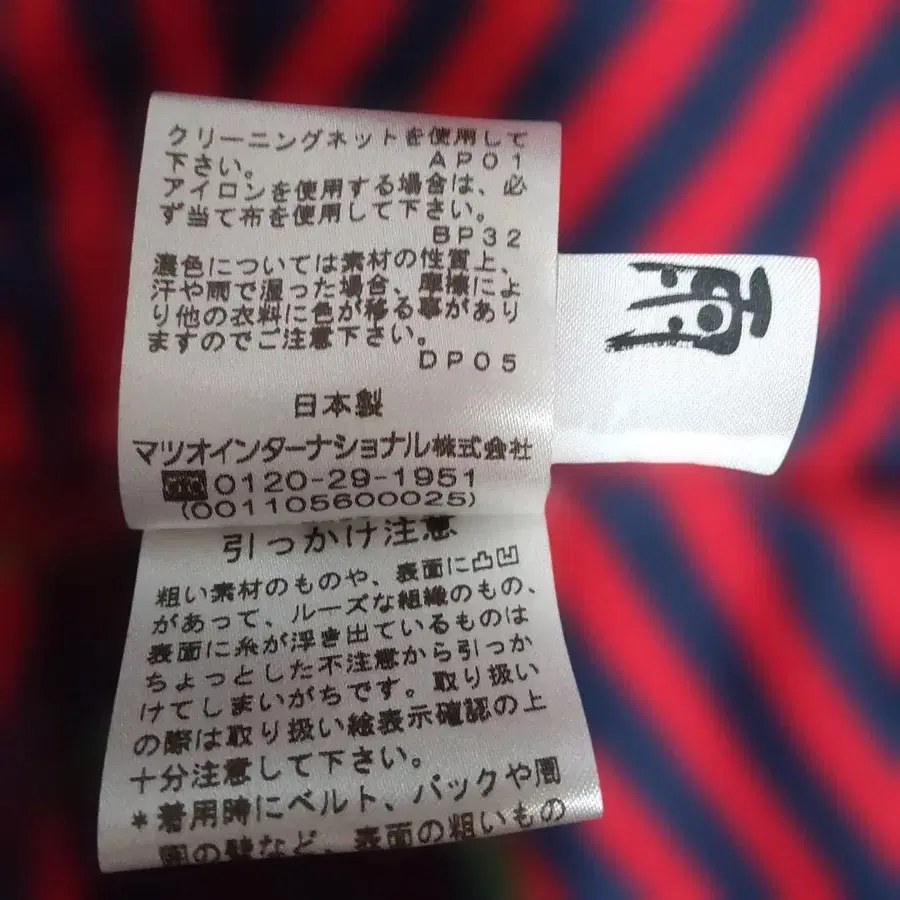 クリーニングネットを使用して
下さい。
AP01
アイロンを使用する場合は、必
ず当て布を使用して下さい。
BP32
濃色については素材の性質上、
汗や雨で湿った場合、摩擦によ
り他の衣料に色が移る事があり
ますのでご注意下さい。
DP05
日本製
マツオインターナショナル株式会社
0120-29-1951
(001105600025)
引っかけ注意
粗い素材のものや、表面に凸凹
があって、ルーズな組織のもの、
表面に糸が浮き出ているものは
ちょっとした不注意から引っか
けてしまいがちです。取り扱い
の際は取り扱い絵表示確認の上
十分注意して下さい。
*着用時にベルト、バックや
など、表面の粗いもの